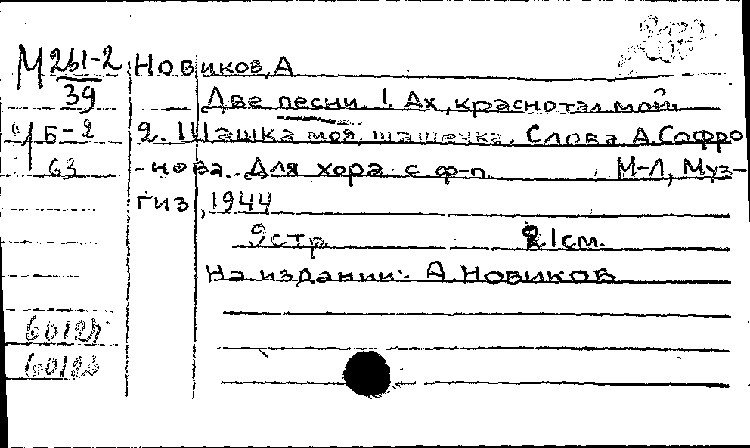 М 261-2 Новиков, А
39 Две песни. 1. Ах, краснотал мой.
М Б-2 2. Шашка моя, шашечка. Слова А. Софро
63 -нова. Для хора с ф-п М-Л, Муз-
гиз, 1944
9 стр. 21 см.
На издании: А. Новиков
60127